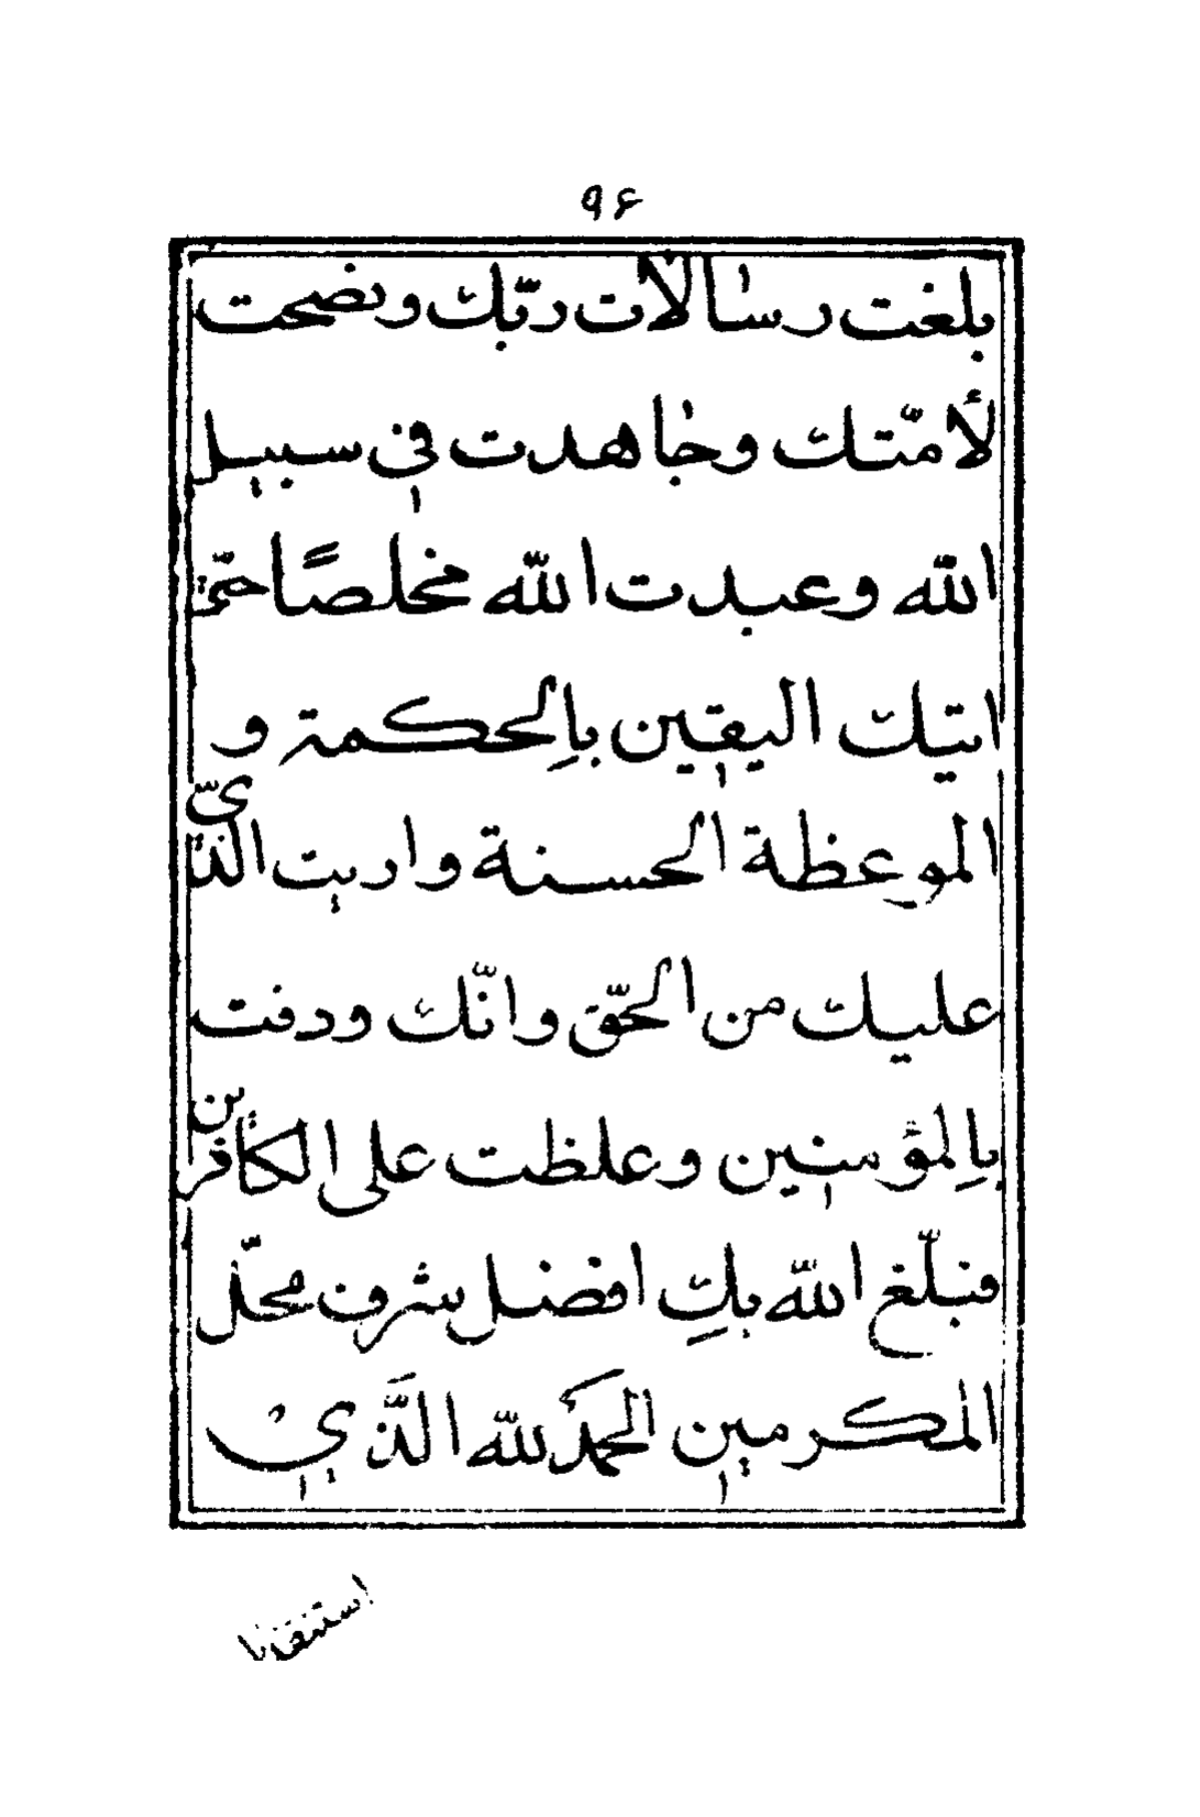 ۹۶
بلغت رسالات ربّك ونصحت
لأمّتك وجاهدت في سبيل
الله وعبدت الله مخلصًا حتّى
اتيك اليقين بالحكمة و
الموعظة الحسنة واديت الّذيّ
عليك من الحقّ وانّك ودفت
بالمؤمنين وعلظت على الكافرين
فبلّغ الله بكِ افضل شرف محلّ
المكرمين الحمد لله الَّذي
استنقذنا